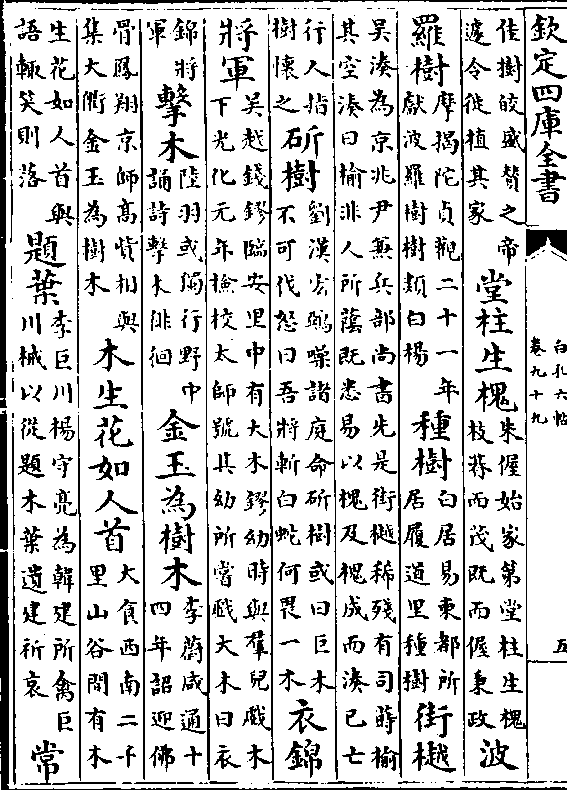 欽定四庫全書
白孔六帖
卷九十九
五
佳樹皎盛贊之帝
遽令徙植其家
堂柱生槐
朱偓始家第堂柱生槐
枝蒋而茂既而偓秉政
波
羅樹
摩揭陀貞觀二十一年
獻波羅樹樹類白楊
種樹
白居易東都所
居履道里種樹
街樾
吳湊為京兆尹兼兵部尚書先是街樾稀殘有司蒔榆
其空湊曰榆非人所蔭既悉易以槐及槐成而湊已亡
行人指
樹懷之
斫樹
劉漢宏鴞噪諸庭命斫樹或曰巨木
不可伐怒曰吾將斬白蛇何畏一木
衣錦
將軍
吳越錢鏐臨安里中有大木鏐幼時與羣兒戲木
下光化元年檢校太師號其幼所嘗戲大木曰衣
錦將
軍
擊木
陸羽或獨行野中
誦詩擊木徘徊
金玉為樹木
李蔚咸通十
四年詔迎佛
骨鳳翔京師高貲相與
集大衢金玉為樹木
木生花如人首
大食西南二千
里山谷間有木
生花如人首與
語輙笑則落
題葉
李巨川楊守亮為韓建所禽巨
川械以從題木葉遺建祈哀
常